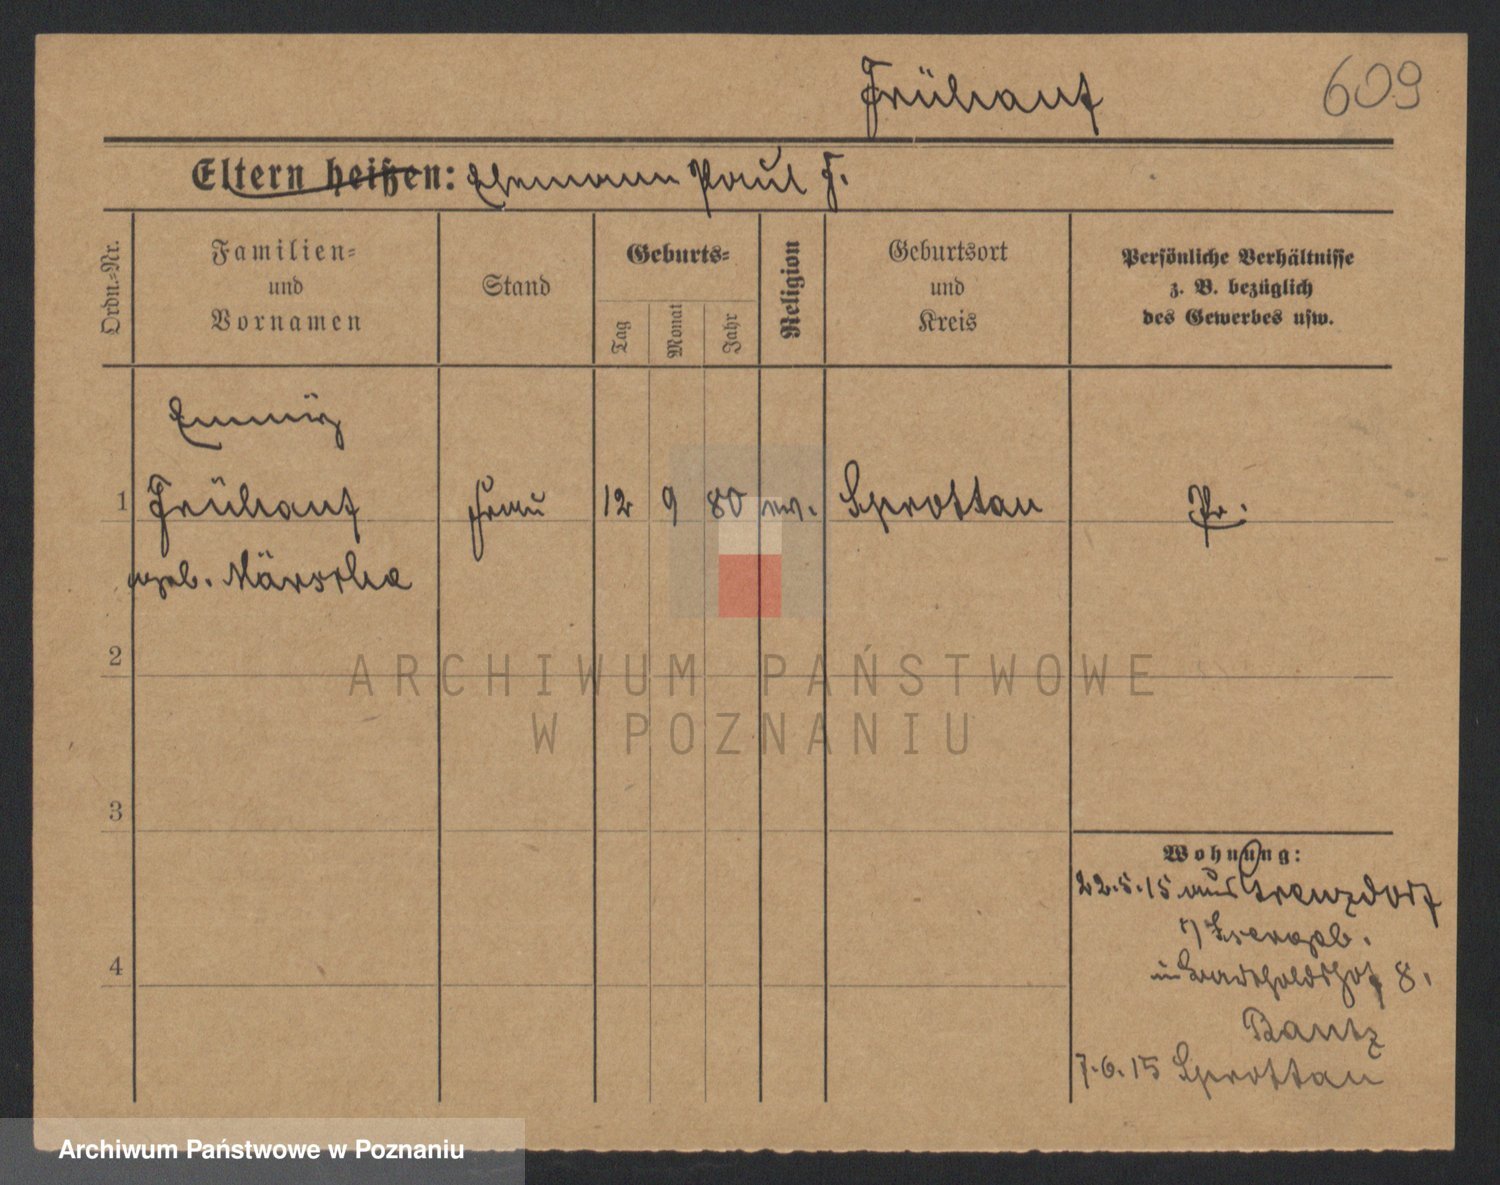 Frühauf 609
Eltern heißen: Ehemann Paul F.
Ordn.-Nr.
Familien-
und
Vornamen
Stand
Geburts-
Tag
Monat
Jahr
Religion
Geburtsort
und
Kreis
Persönliche Verhältnisse
z. B. bezüglich
des Gewerbes usw.
1
Frühauf
Frau 12 9 80 ev. Sprottau Pr.
geb.
2
ARCHIWUM PAŃSTWOWE
W POZNANIU
3
Wohnung:
22.5.15 aus
4
8.
7.6.15 Sprottau
Archiwum Państwowe w Poznaniu